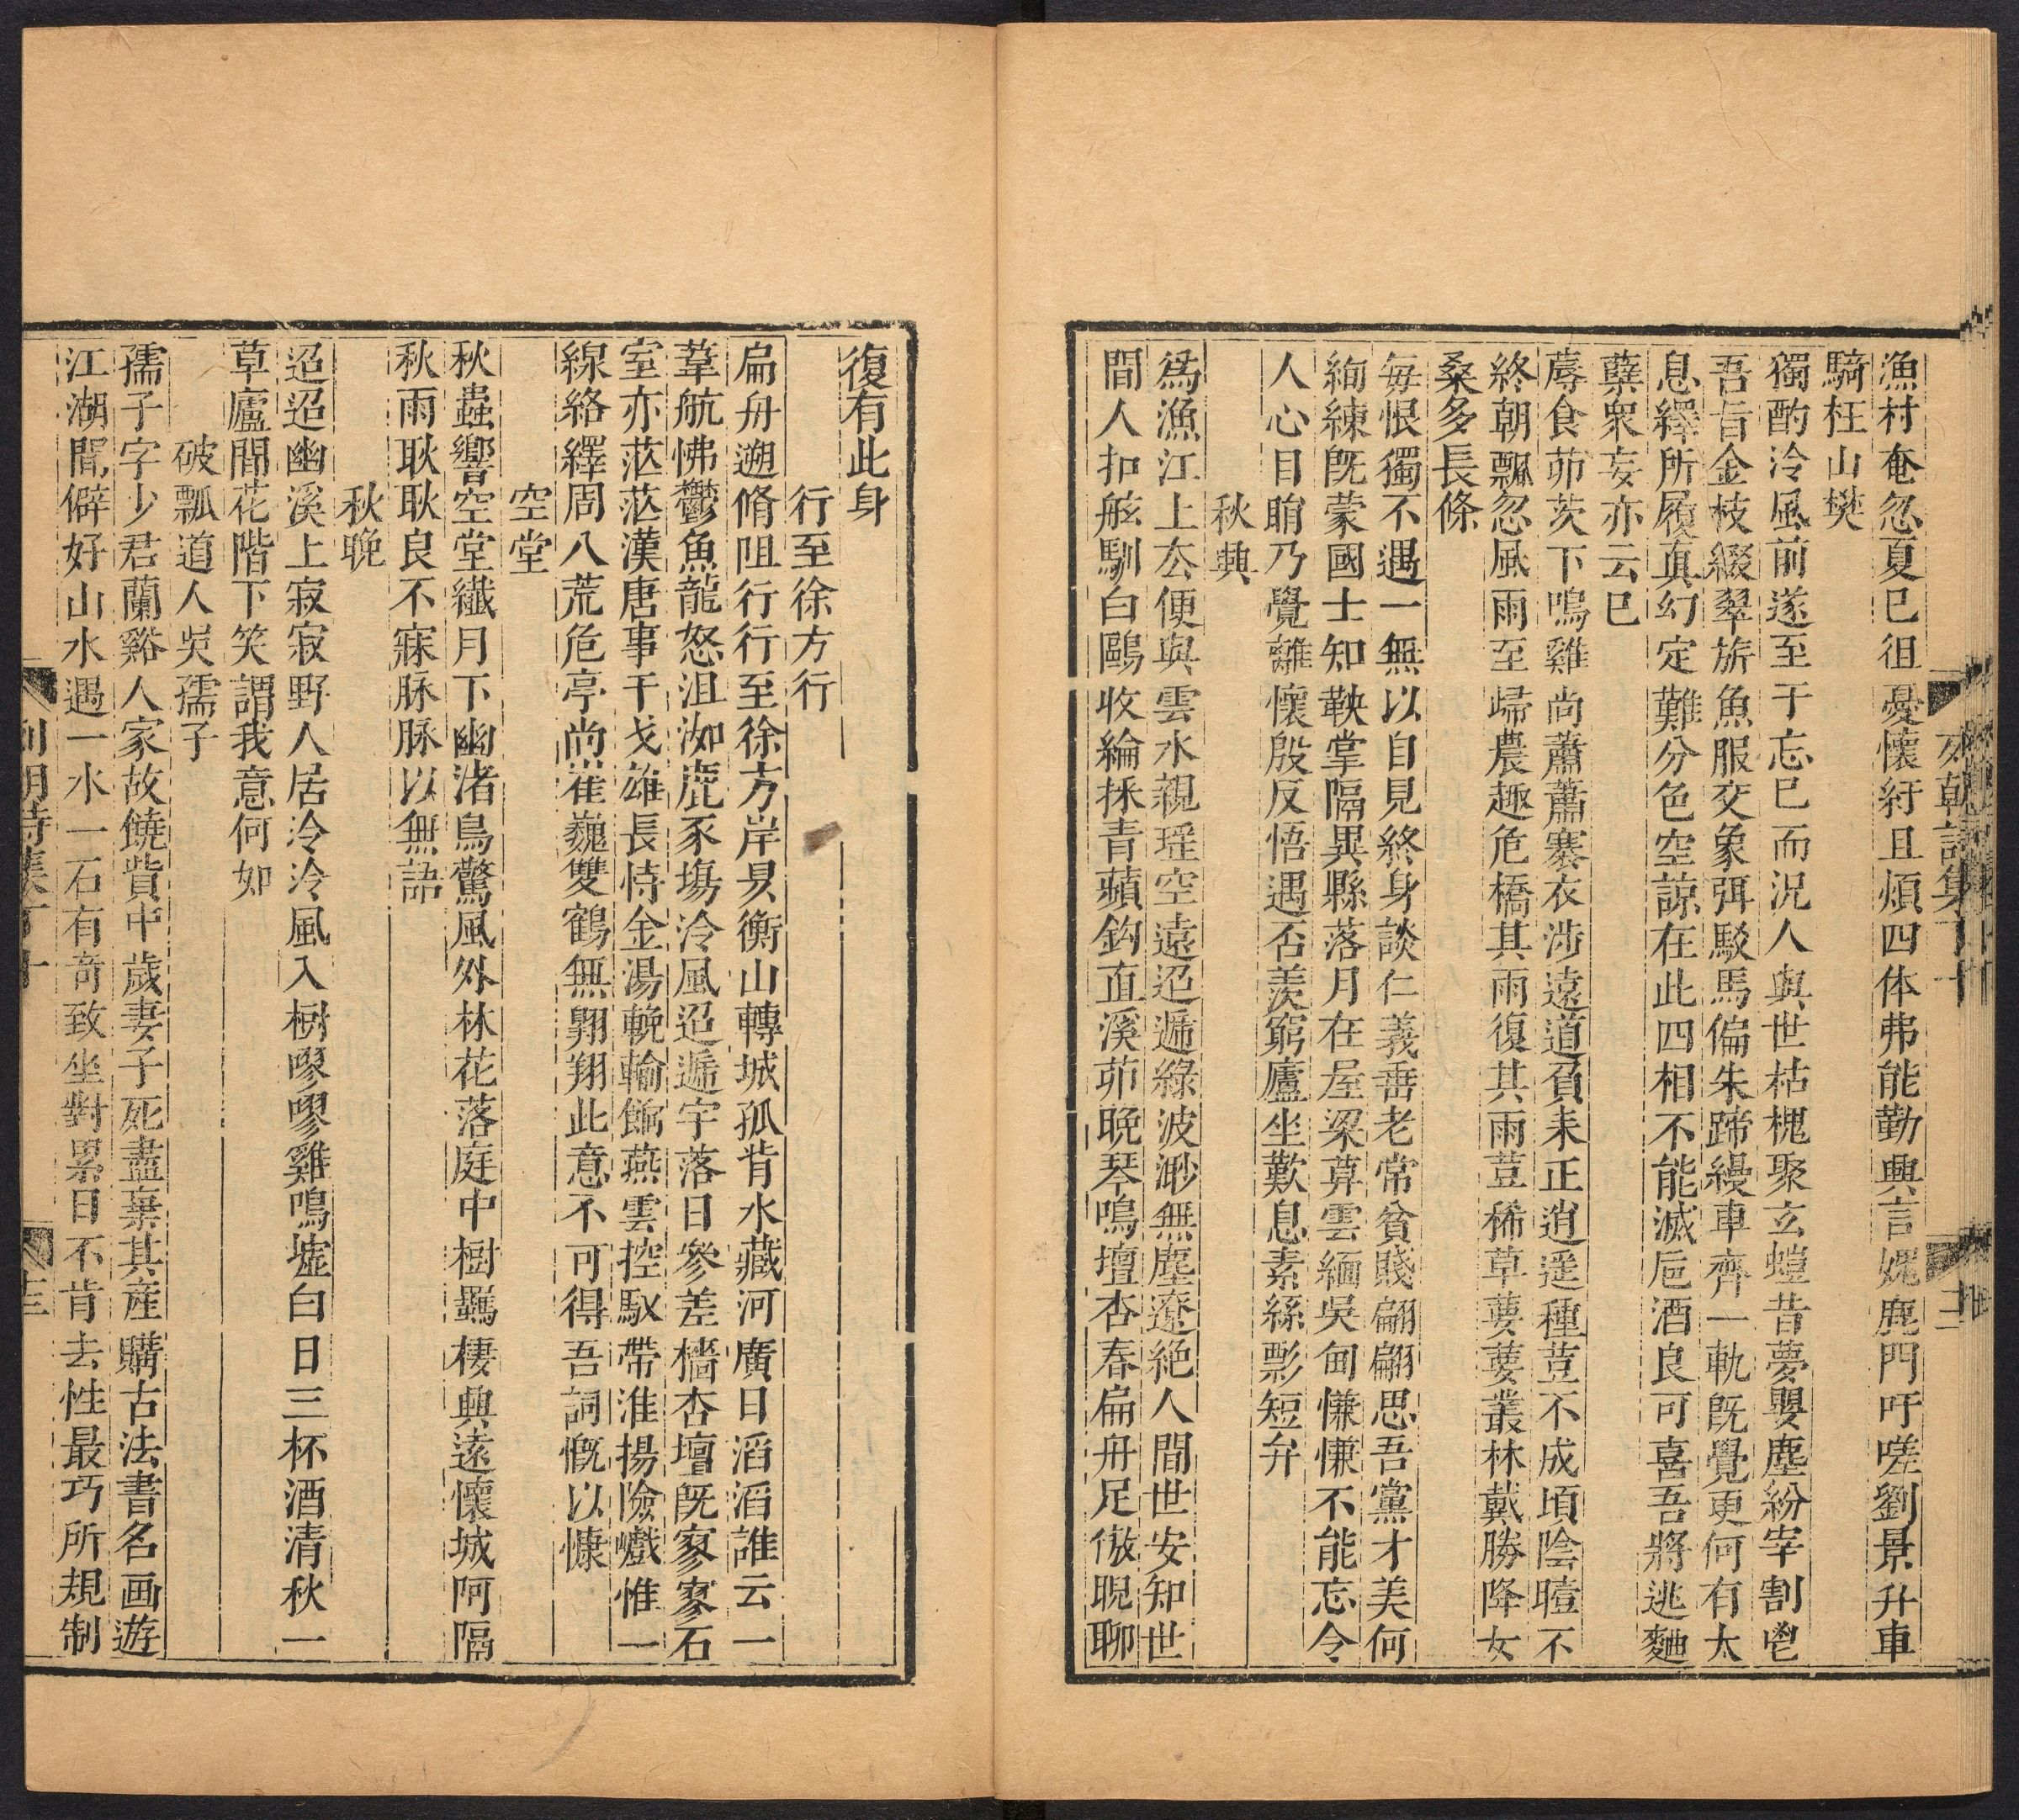 漁村奄忽夏已徂憂懷紆且煩四体弗能勤興言媿鹿門吁嗟劉景升車
騎枉山樊
獨酌泠風前遂至于忘已而況人與世枯槐聚玄螘昔夢嬰塵紛宰割鬯
吾旨金枝綴翠旂魚服交象弭駁馬偏朱蹄縵車齊一軌旣覺更何有太
息繹所履眞幻定難分色空諒在此四相不能滅巵酒良可喜吾將逃麯
蘖衆妄亦云已
蓐食茆茨下鳴雞尚蕭蕭褰衣涉遠道負耒正逍遥種荳不成頃陰曀不
終朝飄忽風雨至歸農趣危橋其雨復其雨荳稀草萋萋叢林戴勝降女
桑多長條
每恨獨不遇一無以自見終身談仁義垂老常貧賤翩翩思吾黨才美何
絢練旣蒙國士知鞅掌隔異縣落月在屋梁葬雲緬吳甸慊慊不能忘令
人心目眴乃覺離懷殷反悟遇否羨窮廬坐歎息素絲髟短弁
秋興
爲漁江上去便與雲水親瑶空遠迢遞綠波渺無塵遼絕人間世安知世
間人扣舷馴白鷗收綸采青蘋鈎直溪茆晚琴鳴壇杏春扁舟足傲睨聊
復有此身
行至徐方行
扁舟遡脩阻行行至徐方岸易衡山轉城孤背水藏河廣日滔滔誰云一
葦航怫鬱魚龍怒沮洳鹿豕塲泠風迢遞宇落日參差檣杏壇旣寥寥石
室亦茫茫漢唐事干戈雄長恃金湯輓輸餙燕雲控馭帶淮揚險巇惟一
線絡繹周八荒危亭尚崔巍雙鶴無翺翔此意不可得吾詞慨以慷
空堂
秋蟲響空堂纖月下幽渚鳥驚風外林花落庭中樹羈棲興遠懷城阿隔
秋雨耿耿良不寐脉脉以無語
秋晚
迢迢幽溪上寂寂野人居泠泠風入樹嘐嘐雞鳴墟白日三杯酒清秋一
草廬閒花階下笑謂我意何如
破瓢道人吳孺子
孺子字少君蘭谿人家故饒貲中歲妻子死盡棄其産購古法書名画遊
江湖間僻好山水遇一水一石有奇致坐對累日不肯去性最巧所規制